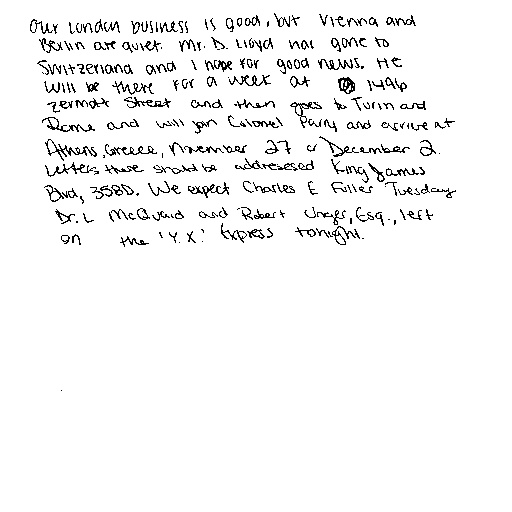 Our London business is good, but Vienna and
Berlin are quiet. Mr. D. Lloyd has gone to
Switzerland and I hope for good news. He
will be there for a week at 1496
Zermott Street and then goes to Turin and
Rome and will join Colonel Parry and arrive at
Athens, Greece, November 27 or December 2.
Letters there should be addressesed King James
Blvd, 3580. We expect Charles E Fuller Tuesday
Dr. L McQuaid and Robert Unger, Esq., left
on the 'Y.X.' Express tonight.